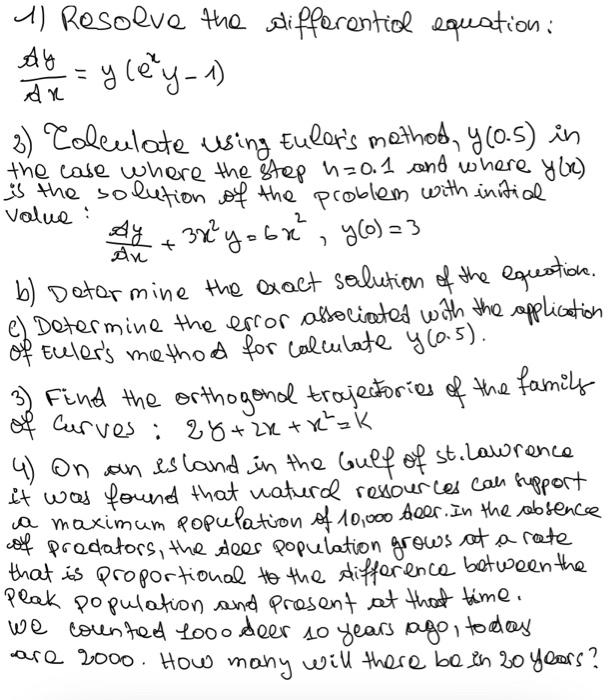 1) Resolve the differential equation:
dy/dx = y(e^x y - 1)
2) Calculate using Euler's method, y(0.5) in
the case where the step h=0.1 and where y(x)
is the solution of the problem with initial
value:
dy/dx + 3x² y = 6x², y(0) = 3
b) Determine the exact solution of the equation.
c) Determine the error associated with the application
of Euler's method for calculate y(0.5).
3) Find the orthogonal trajectories of the family
of curves: 2y + 2x + x² = K
4) On an island in the Gulf of St. Lawrence
it was found that natural resources can support
a maximum population of 10,000 deer. In the absence
of predators, the deer population grows at a rate
that is proportional to the difference between the
peak population and present at that time.
we counted 1000 deer 10 years ago, today
are 2000. How many will there be in 20 years?